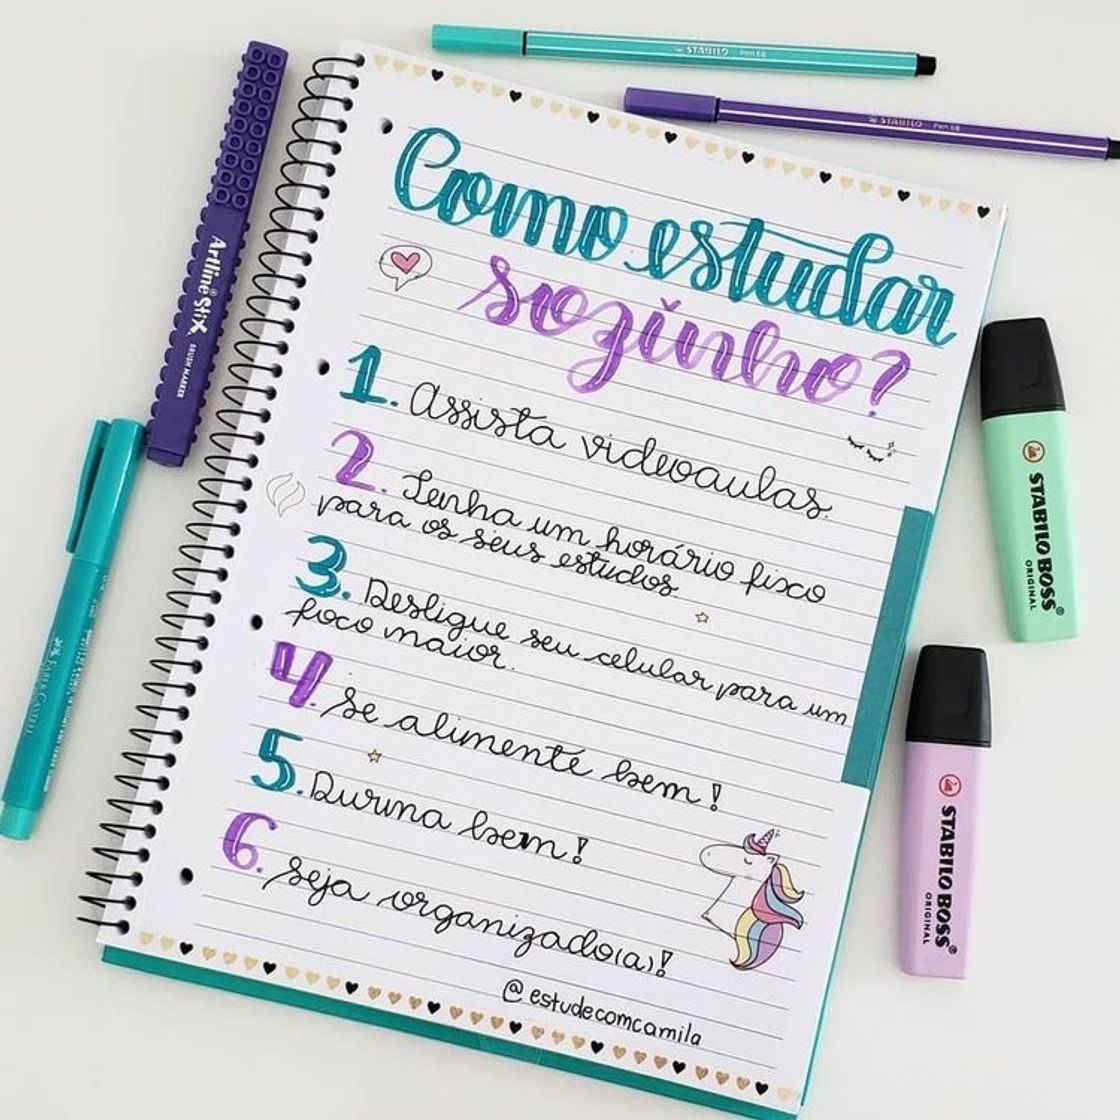 Como estudar
sozinho?
1. Assista videoaulas.
2. Tenha um horário fixo
para os seus estudos
3. Desligue seu celular para um
foco maior.
4. Se alimente bem!
5. Durma bem!
6. Seja organizado(a)!
@estudecomcamila
STABILO Pen 68
STABILO Pen 68
Artline Stix BRUSH MARKER
FABER-CASTELL
STABILO BOSS
ORIGINAL
STABILO BOSS
ORIGINAL